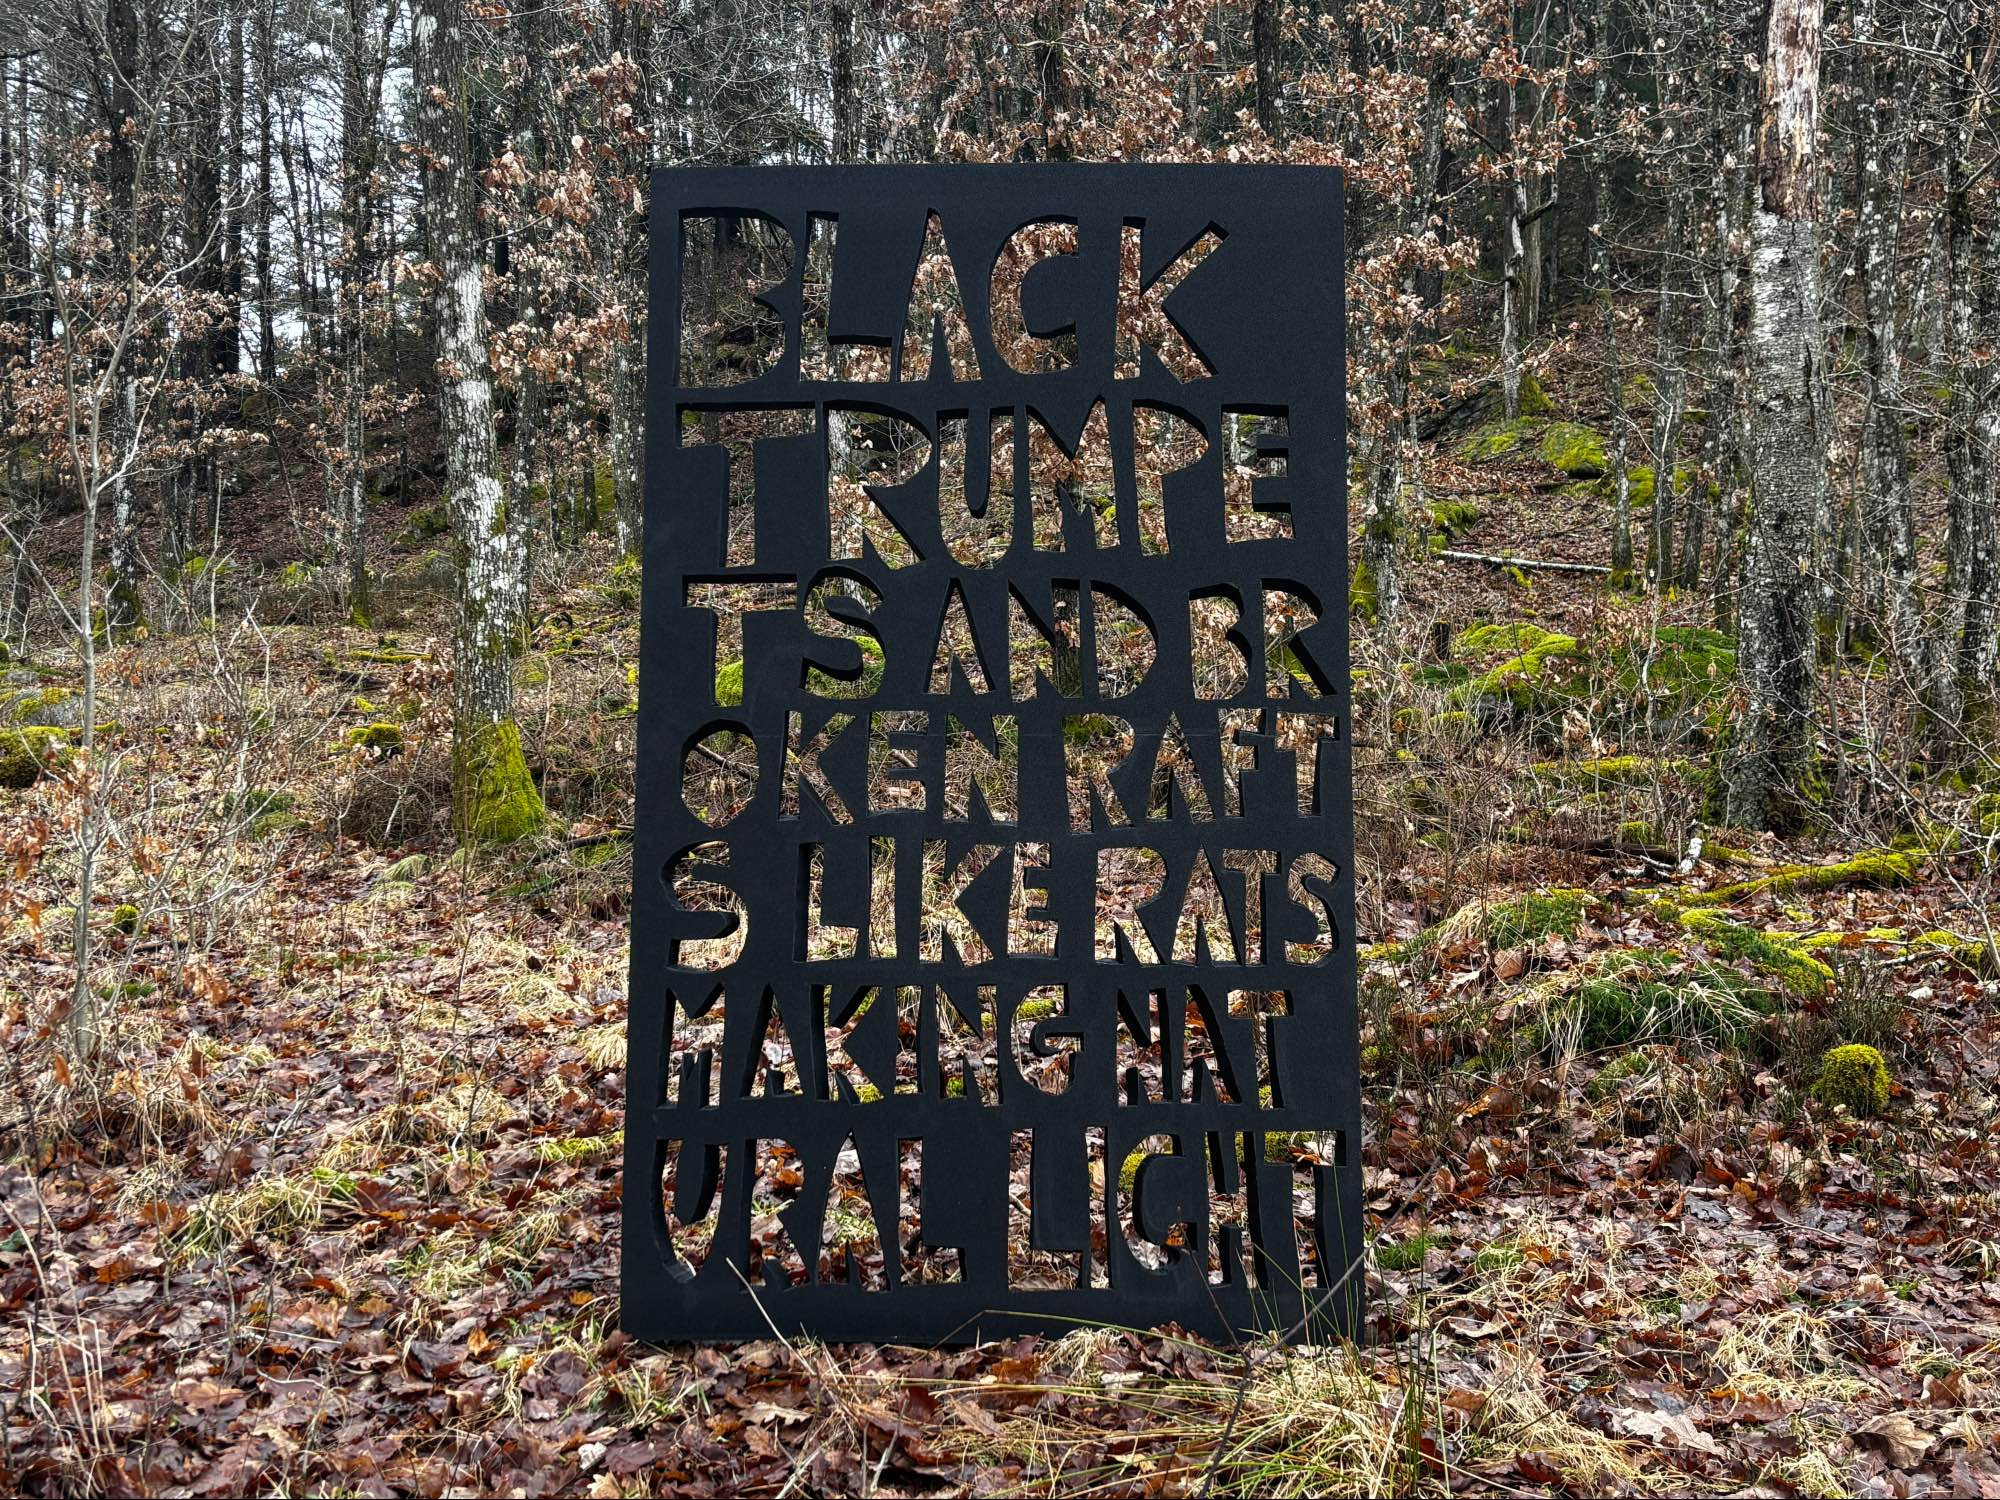 BLACK
TRUMPE
TS AND BR
OKEN RAFT
S LIKE RATS
MAKING NAT
URAL LIGHT